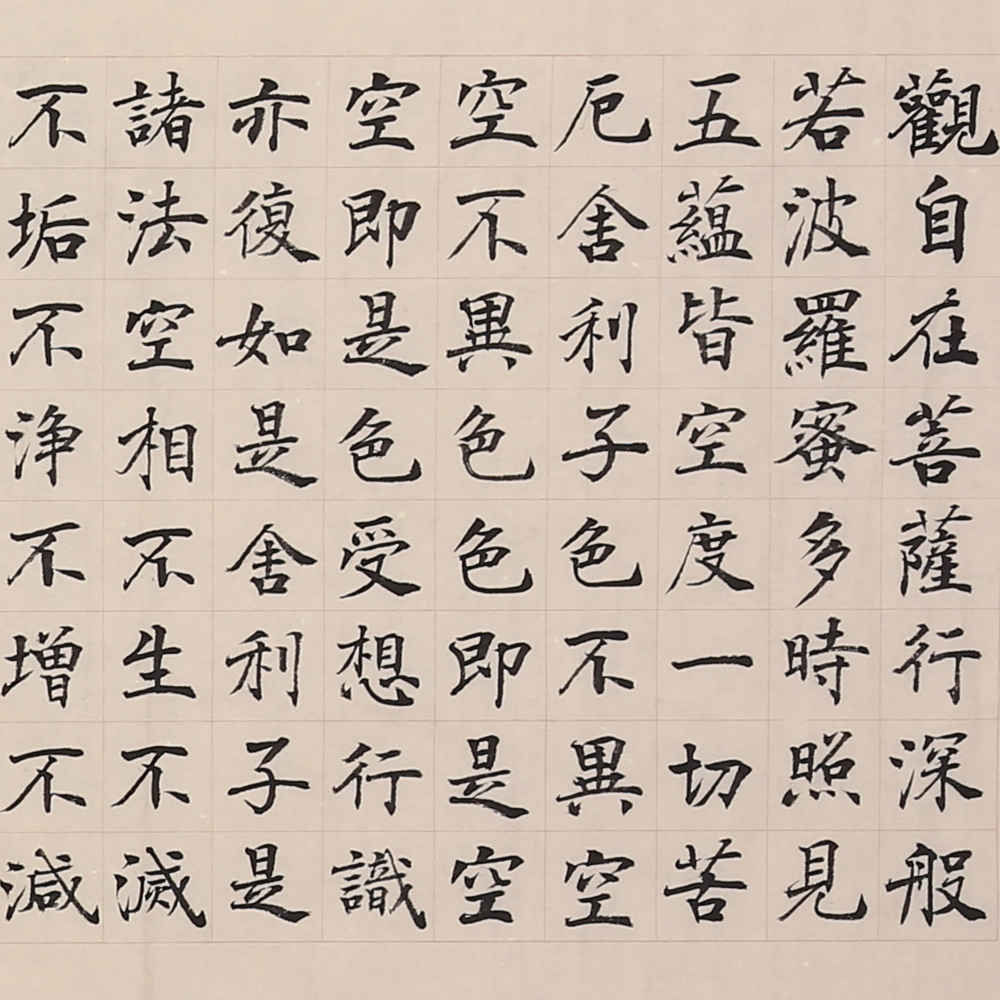 觀自在菩薩行深般
若波羅蜜多時照見
五蘊皆空度一切苦
厄舍利子色不異空
空不異色色即是空
空即是色受想行識
亦復如是舍利子是
諸法空相不生不滅
不垢不淨不增不減